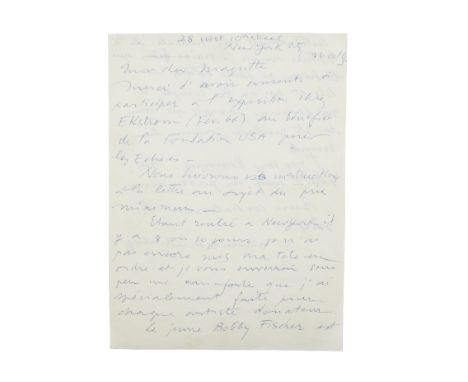 28 West 10 Street
New York City
Mon cher Magritte
Merci d'avoir consenti à
participer à l'exposition chez
Ekstrom (Fev. 66) au bénéfice
de la Fondation USA pour
les Echecs –
Nous suivrons vos instructions
à la lettre au sujet du prix
minimum –
Etant rentré à New York il
y a 8 ou 10 jours, je n'ai
pas encore mis ma tete en
ordre et je vous enverrai sous
peu une eau-forte que j'ai
spécialement faite pour
chaque artiste donateur
Le jeune Bobby Fischer est